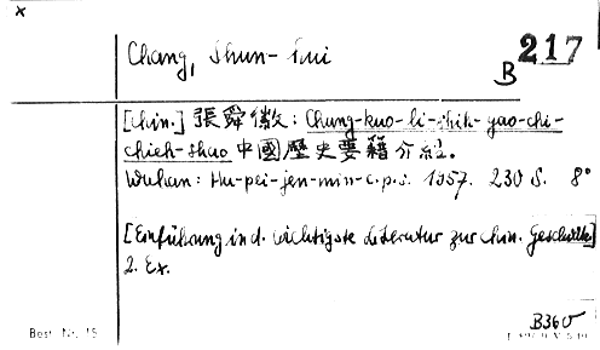 x
Chang, Shun-hui
B 217
[chin.] 張舜徽: Chung-kuo-li-shih-yao-chi-
chieh-shao 中國歷史要籍介紹。
Wuhan: Hu-pei-jen-min-c.p.s. 1957. 230 S. 8°
[Einführung in d. wichtigste Literatur zur chin. Geschichte]
2. Ex.
B360
Best. Nr. 15